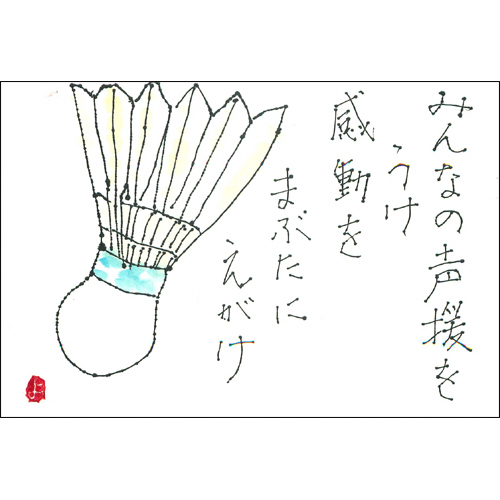 みんなの声援を
うけ
感動を
まぶたに
えがけ
よ